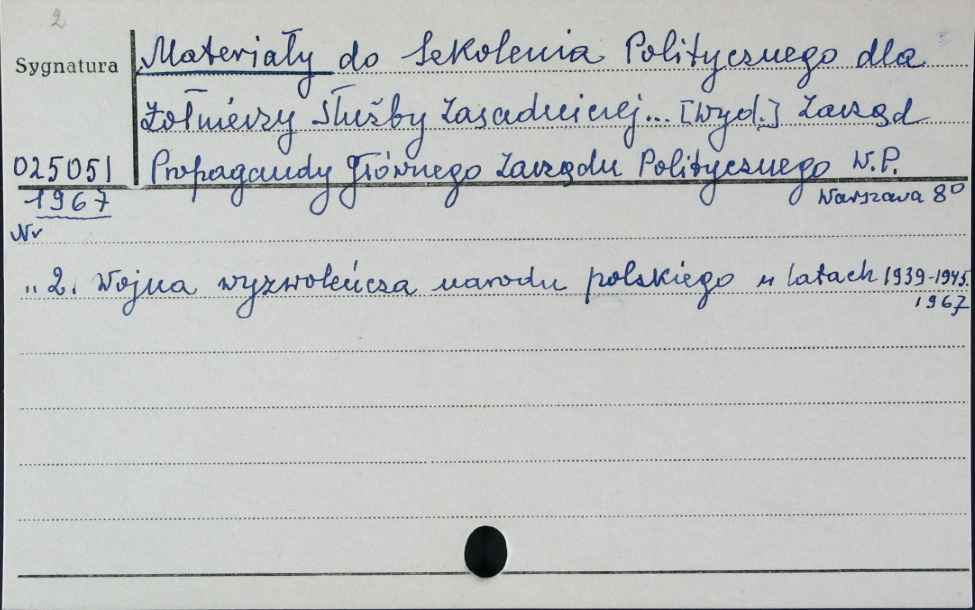 2
Sygnatura
Materiały do Szkolenia Politycznego dla
Żołnierzy Służby Zasadniczej... [Wyd.] Zarząd
025051 Propagandy Głównego Zarządu Politycznego W.P.
1967 Warszawa 8°
Nr
„ 2. Wojna wyzwoleńcza narodu polskiego w latach 1939-1945.
1967